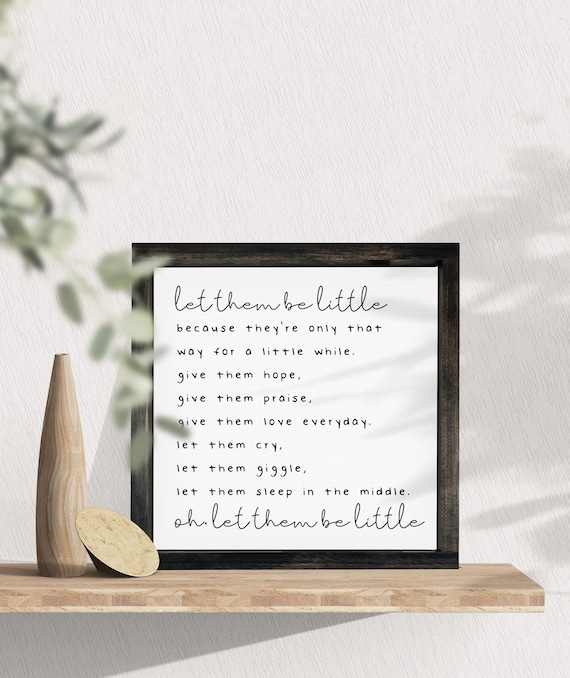 let them be little
because they're only that
way for a little while.
give them hope,
give them praise,
give them love everyday.
let them cry,
let them giggle,
let them sleep in the middle.
oh, let them be little